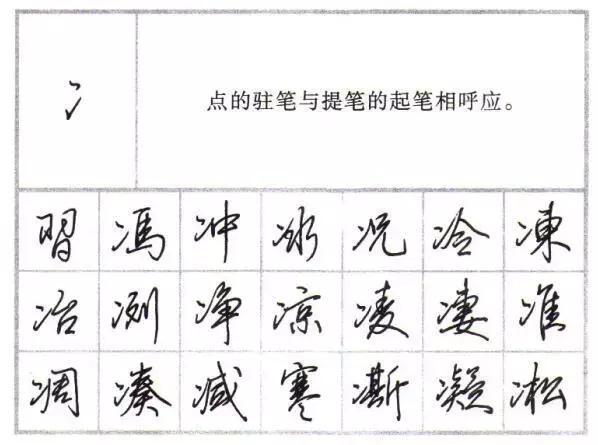 冫 点的驻笔与提笔的起笔相呼应。
習 馮 冲 冰 况 冷 凍
冶 冽 净 凉 凌 凄 准
凋 凑 减 寒 凘 凝 凇